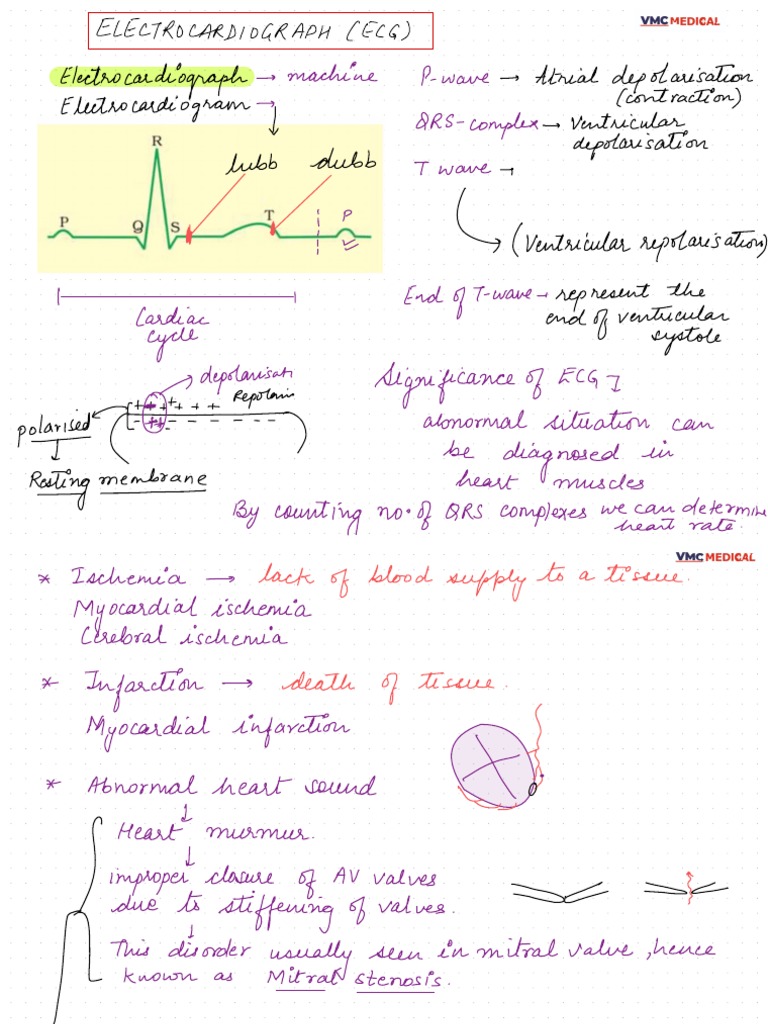 ELECTROCARDIOGRAPH (ECG)
VMC MEDICAL
Electrocardiograph → machine
Electrocardiogram →
P-wave → Atrial depolarisation
(contraction)
QRS-complex → Ventricular
depolarisation
T wave →
(Ventricular repolarisation)
R
lubb
dubb
P
Q
S
T
P
Cardiac
cycle
End of T-wave → represent the
end of ventricular
systole
depolarisati
Repolaris
polarised
Resting membrane
Significance of ECG
abnormal situation can
be diagnosed in
heart muscles
By counting no. of QRS complexes we can determine
heart rate.
VMC MEDICAL
* Ischemia → lack of blood supply to a tissue.
Myocardial ischemia
Cerebral ischemia
* Infarction → death of tissue.
Myocardial infarction
* Abnormal heart sound
↓
Heart murmur.
↓
improper closure of AV valves
due to stiffening of valves.
↓
This disorder usually seen in mitral valve, hence
known as Mitral stenosis.